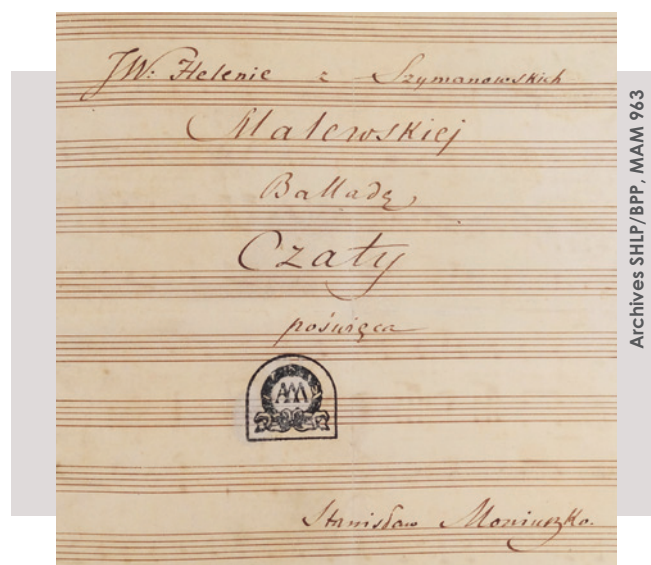 JW: Helenie z Szymanowskich
Malewskiej
Balladę,
Czaty
poświęca
AM
Stanisław Moniuszko.
Archives SHLP/BPP, MAM 963